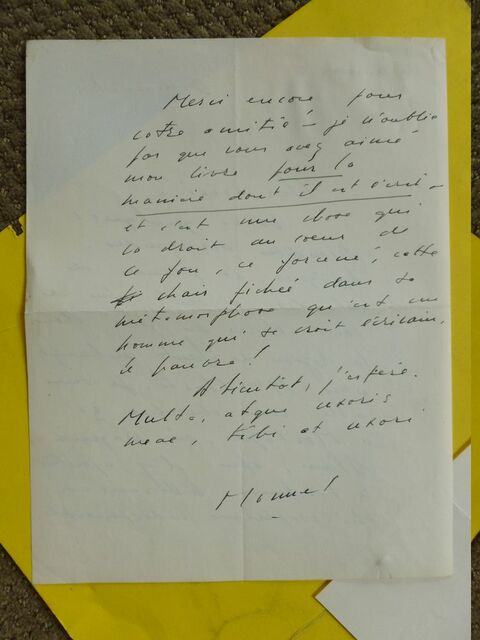 Merci encore pour
votre amitié – je n'oublie
pas que vous avez aimé
mon livre pour la
manière dont il est écrit –
et c'est une chose qui
va droit au coeur de
ce fou, ce forcené, cette
chair fichée dans sa
métamorphose qu'est un
homme qui se croit écrivain,
le pauvre !
A bientôt, j'espère.
Multa, atque uxoris
meae, tibi et uxori